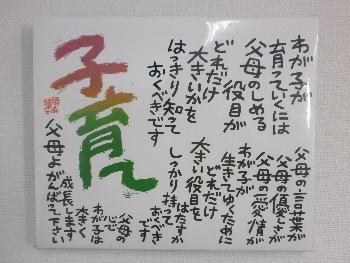 子育て
わが子が
育っていくには
父母のしめる
役目が
どれだけ
大きいかを
はっきり知って
おくべきです
父母の言葉が
父母の優しさが
父母の愛情が
わが子が
生きてゆくために
どれだけ
大きい役目を
はたすか
しっかり持って
おくべき
です
父母の
心で
わが子は
大きく
成長します
父母よがんばって下さい